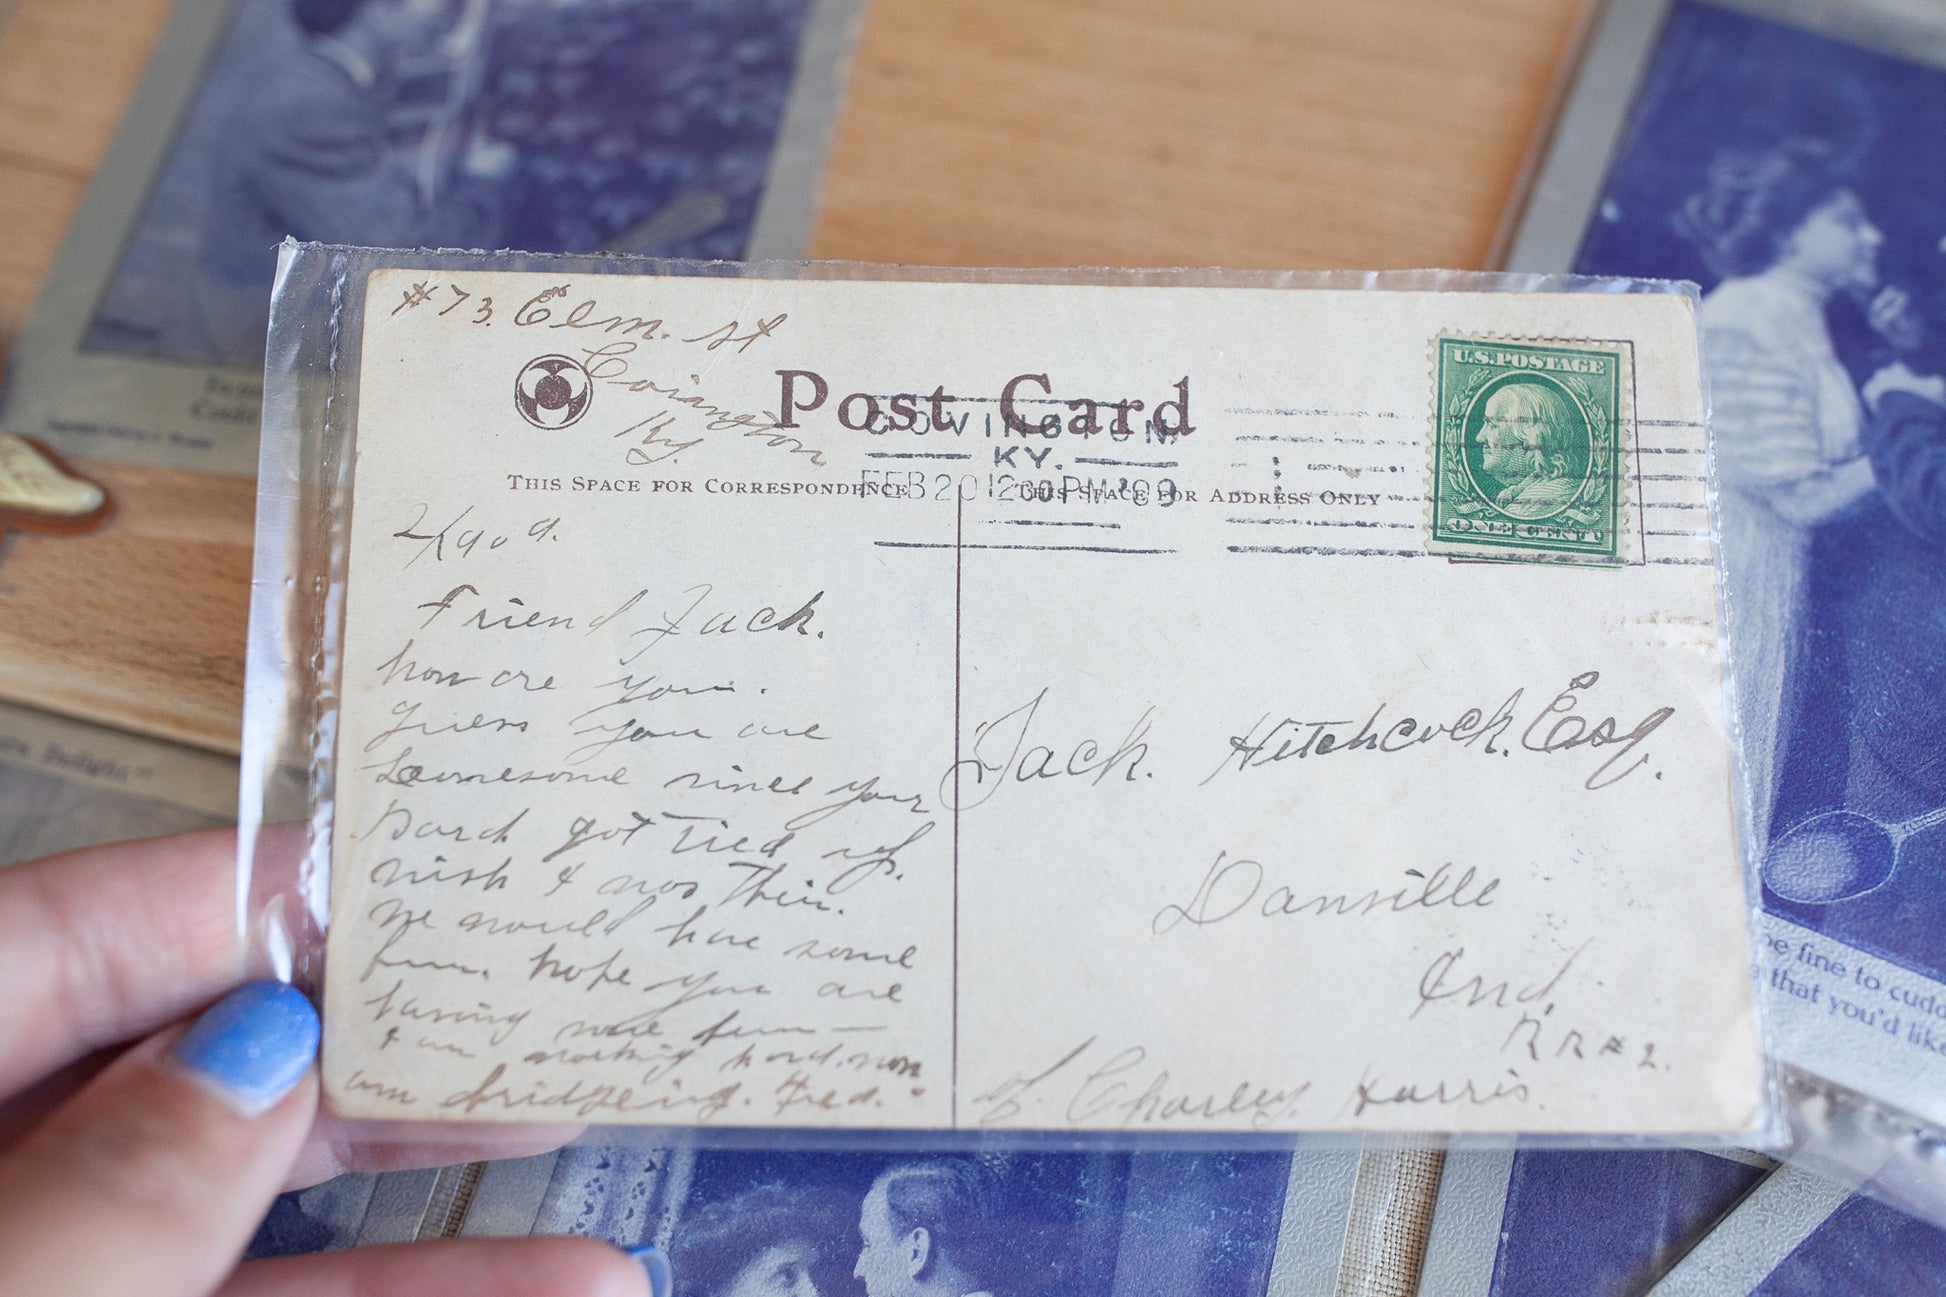 #73. Elm. st
Coviangton
Ky.
Post Card
COVINGTON.
KY.
FEB 20 12 00 PM '09
THIS SPACE FOR CORRESPONDENCE
THIS SPACE FOR ADDRESS ONLY
U.S. POSTAGE
ONE CENT
2/1909.
Friend Jack.
how are you.
guess you are
Lounesome since your
Pard got Tied up.
wish I was Thire.
we would have some
fun. hope you are
having more fun —
I am working hard. now
am bridgeing. Fred.
Jack. Hitchcock. Esq.
Danville
Ind.
RR #2.
of. Charley. Harris.
be fine to cudd
that you'd like